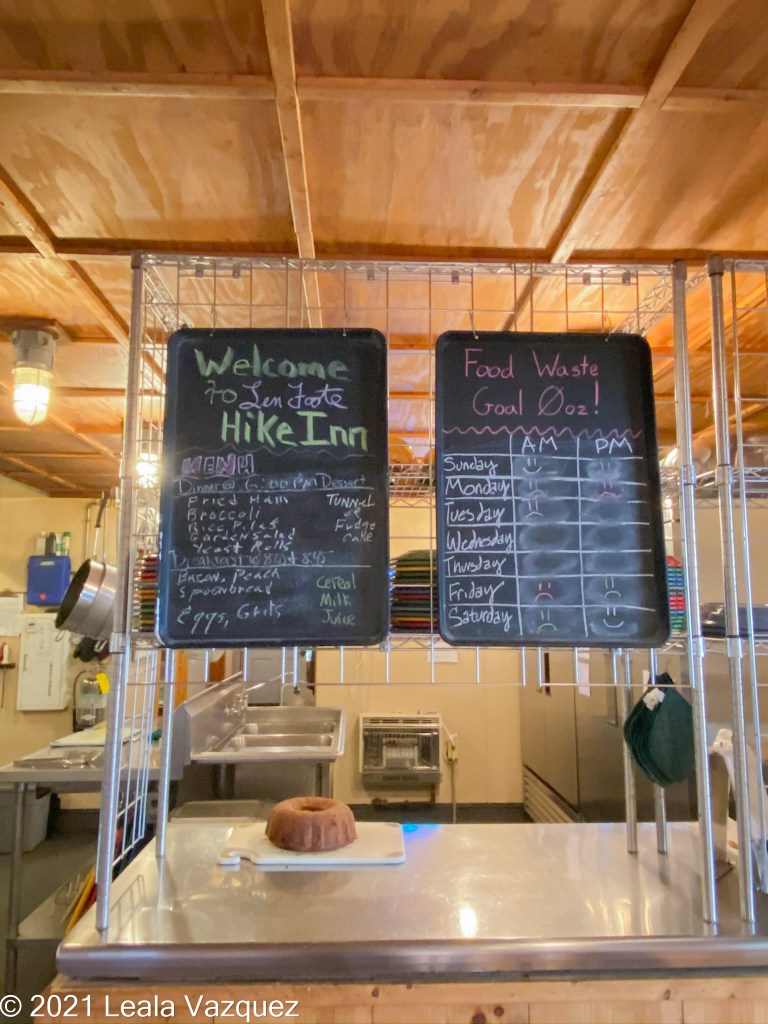 Welcome
to Len Foote
Hike Inn
MENU
Dinner @ 6:00 PM Dessert
Fried Ham
Broccoli
Rice Pilaf
Garden Salad
Yeast Rolls
TUNNEL
of
Fudge
Cake
Bacon, Peach
Spoonbread
Eggs, Grits
Cereal
Milk
Juice
Food Waste
Goal Øoz!
AM PM
Sunday
Monday
Tuesday
Wednesday
Thursday
Friday
Saturday
© 2021 Leala Vazquez